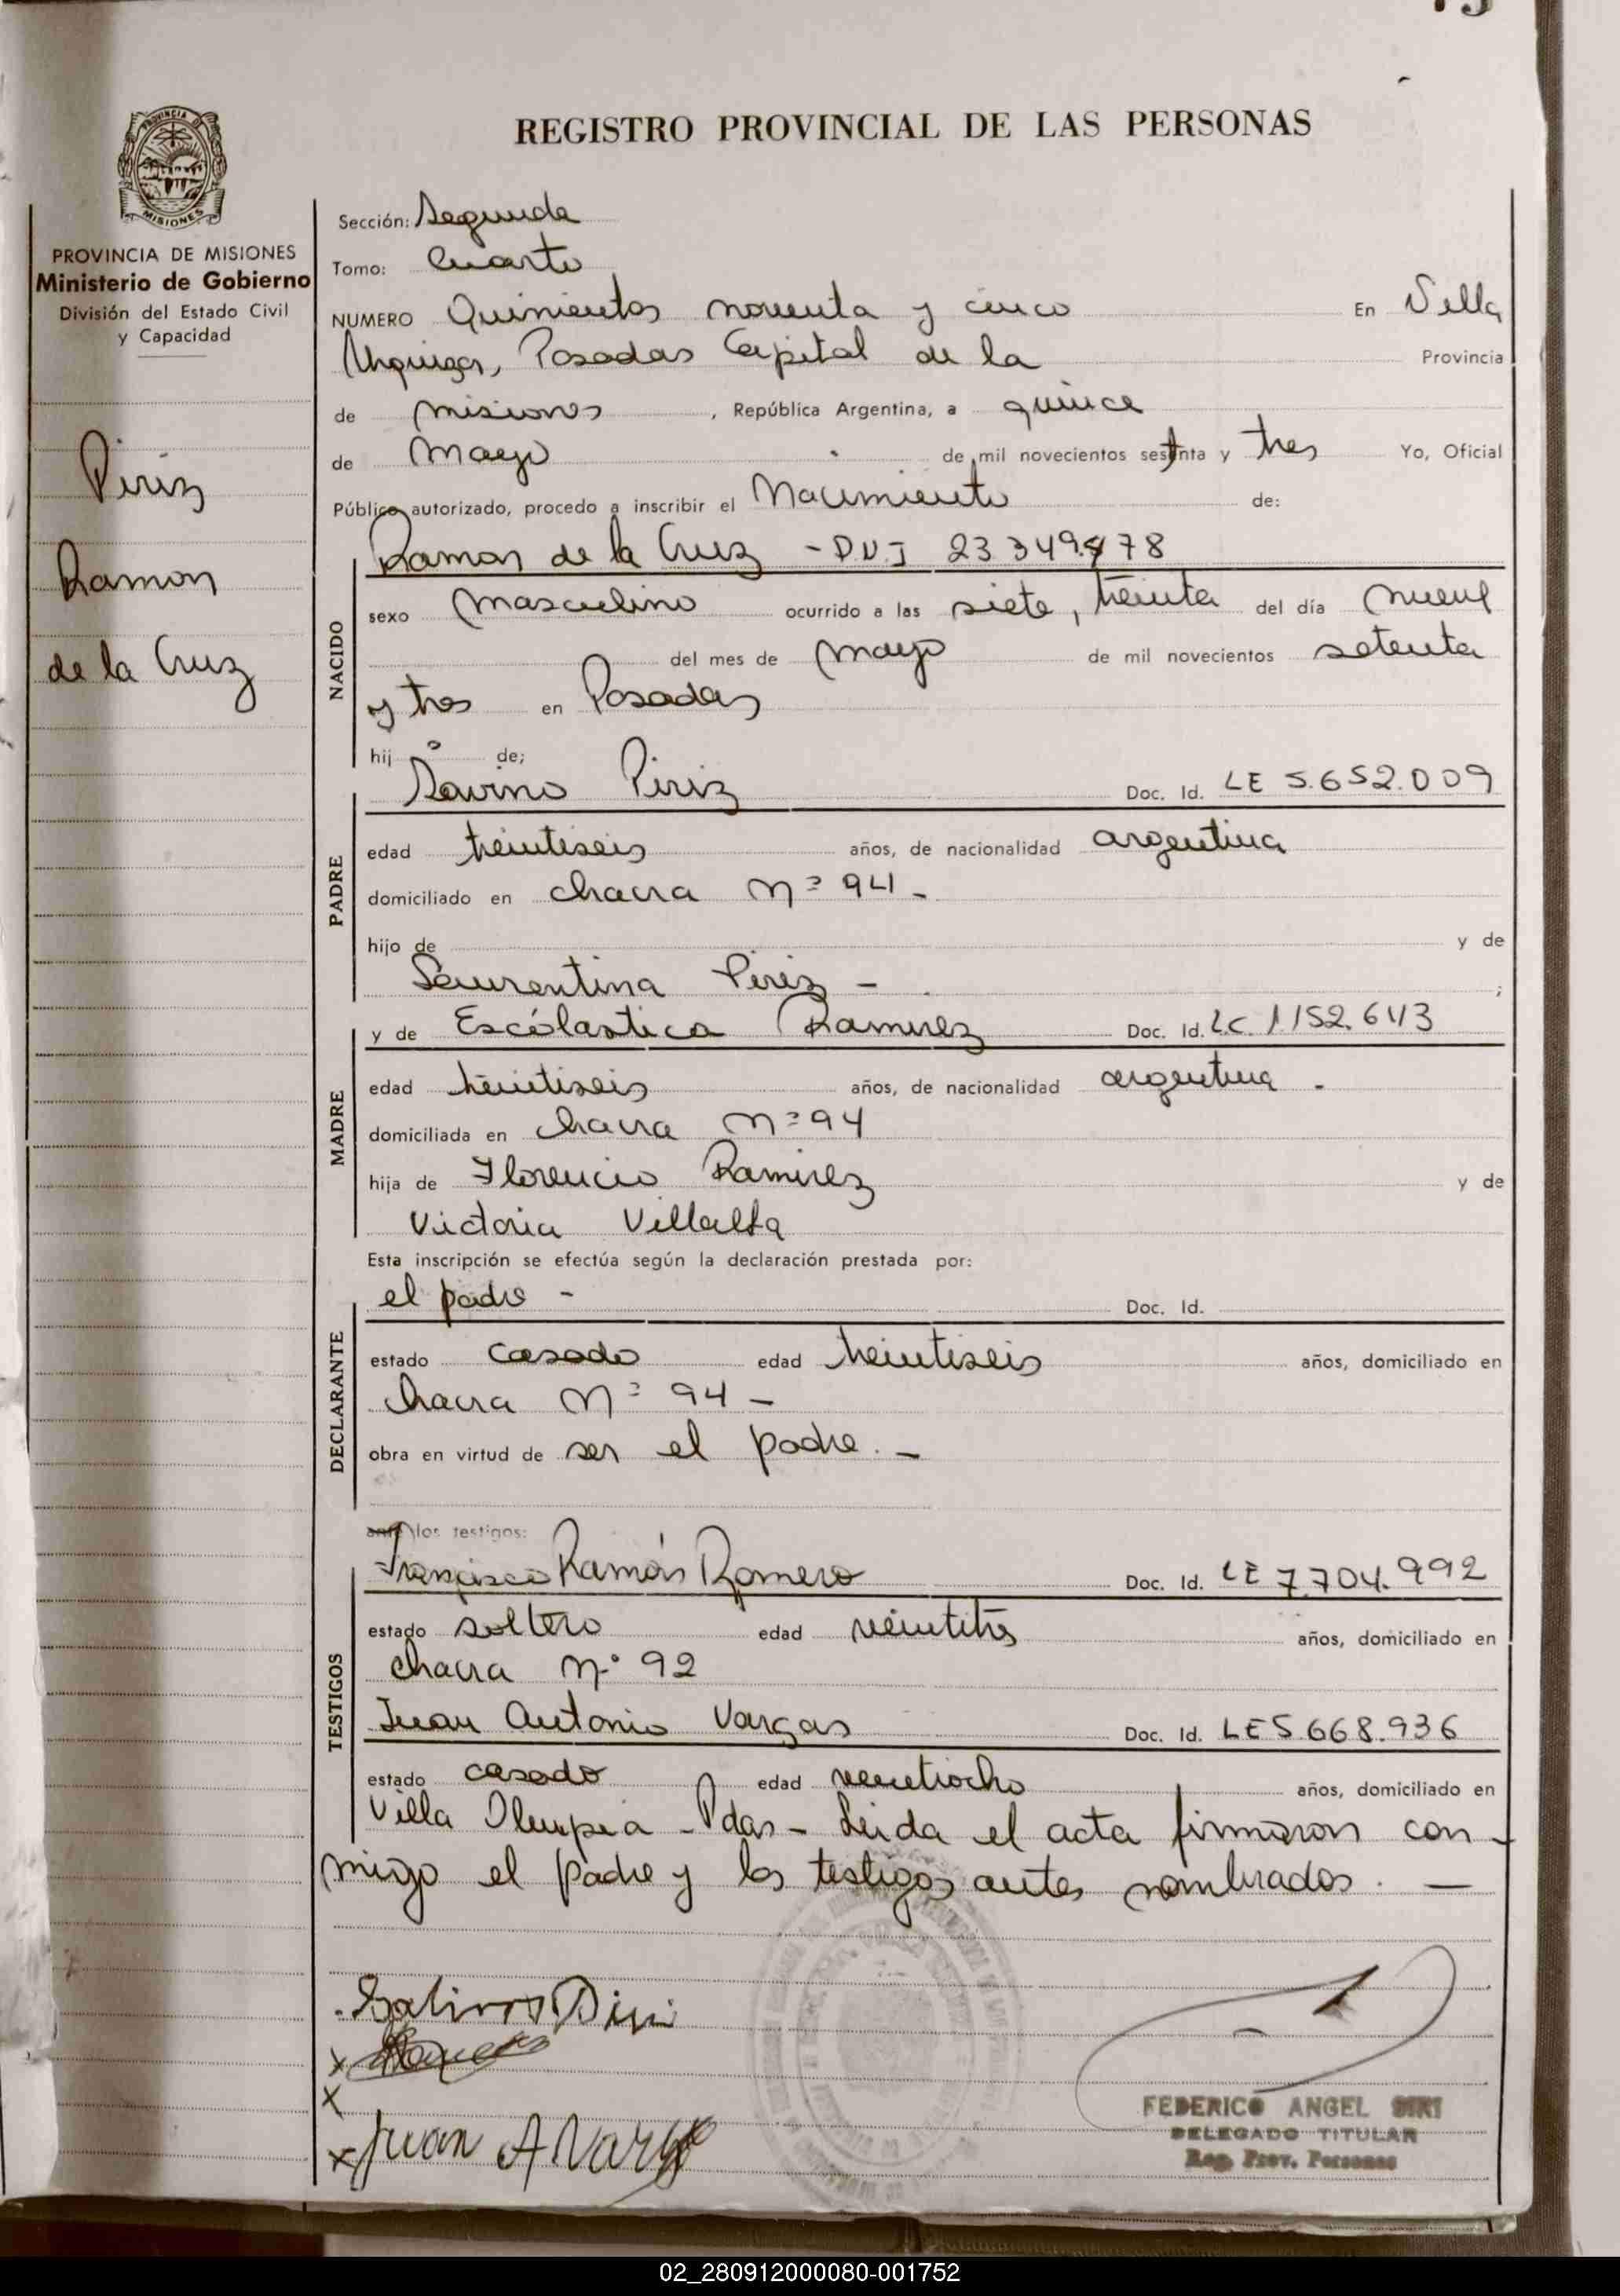 REGISTRO PROVINCIAL DE LAS PERSONAS
MISIONES
PROVINCIA DE MISIONES
Ministerio de Gobierno
División del Estado Civil
y Capacidad
Piriz
Ramon
de la Cruz
Sección: Segunda
Tomo: Cuarto
NUMERO Quinientos noventa y cinco En Villa
Urquiza, Posadas Capital de la Provincia
de misiones, República Argentina, a quince
de mayo de mil novecientos setenta y tres Yo, Oficial
Público autorizado, procedo a inscribir el Nacimiento de:
Ramon de la Cruz - D.N.I 23 349.478
NACIDO
sexo masculino ocurrido a las siete, treinta del día nueve
del mes de mayo de mil novecientos setenta
y tres en Posadas
hijo de;
Savino Piriz Doc. Id. LE 5.652.009
PADRE
edad treintiseis años, de nacionalidad argentina
domiciliado en chacra nº 94 -
hijo de y de
Laurentina Piriz - ;
y de Escolastica Ramirez Doc. Id. L.C. 1152.643
MADRE
edad treintiseis años, de nacionalidad argentina .
domiciliada en chacra nº 94
hija de Florencio Ramirez y de
Victoria Villalba
Esta inscripción se efectúa según la declaración prestada por:
el padre - Doc. Id.
DECLARANTE
estado casado edad treintiseis años, domiciliado en
chacra nº 94 -
obra en virtud de ser el padre. -
ante los testigos:
Francisco Ramón Romero Doc. Id. LE 7.704.992
TESTIGOS
estado soltero edad veintitrés años, domiciliado en
chacra nº 92
Juan Antonio Vargas Doc. Id. LE 5.668.936
estado casado edad veintiocho años, domiciliado en
Villa Olimpia - Pdas - Leida el acta firmaron con -
migo el padre y los testigos antes nombrados. -
x
x
x Juan A Vargas
FEDERICO ANGEL SIRI
DELEGADO TITULAR
Reg. Prov. Personas
02_280912000080-001752